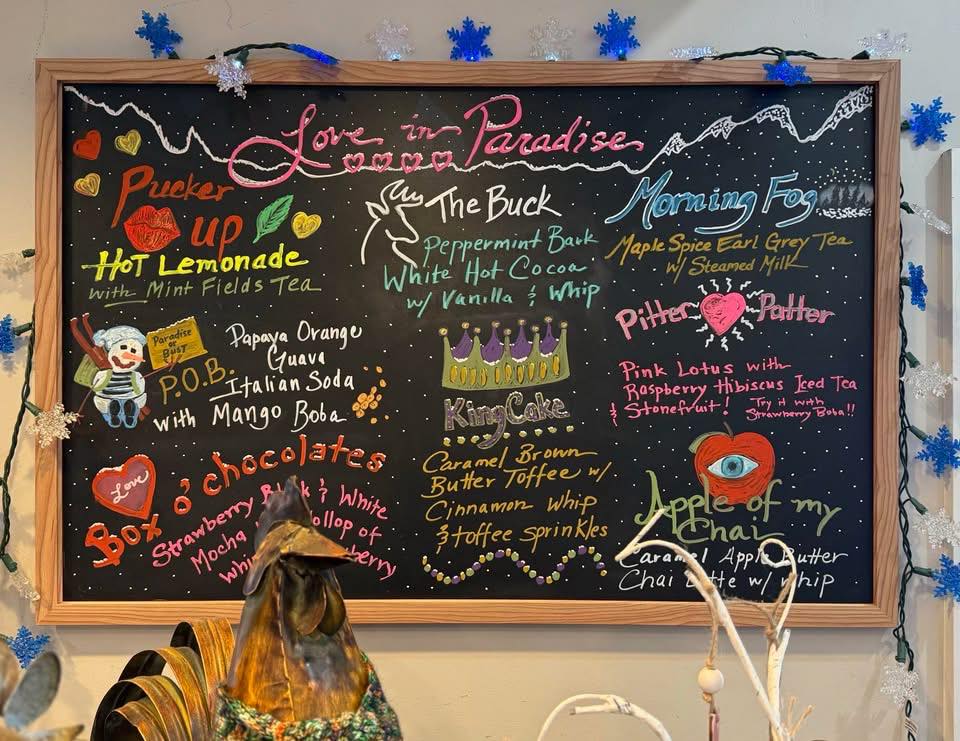 Love in Paradise
Pucker
up
Hot Lemonade
with Mint Fields Tea
Paradise
or
BUST!
P.O.B.
Papaya Orange
Guava
Italian Soda
with Mango Boba
Love
Box o' chocolates
Strawberry & White
Mocha
Whip
The Buck
Peppermint Bark
White Hot Cocoa
w/ Vanilla & Whip
King Cake
Caramel Brown
Butter Toffee w/
Cinnamon Whip
& toffee sprinkles
Morning Fog
Maple Spice Earl Grey Tea
w/ Steamed Milk
Pitter Patter
Pink Lotus with
Raspberry Hibiscus Iced Tea
& Stonefruit! Try it with
Strawberry Boba!!
Apple of my
Chai
Caramel Apple Butter
Chai Latte w/ whip